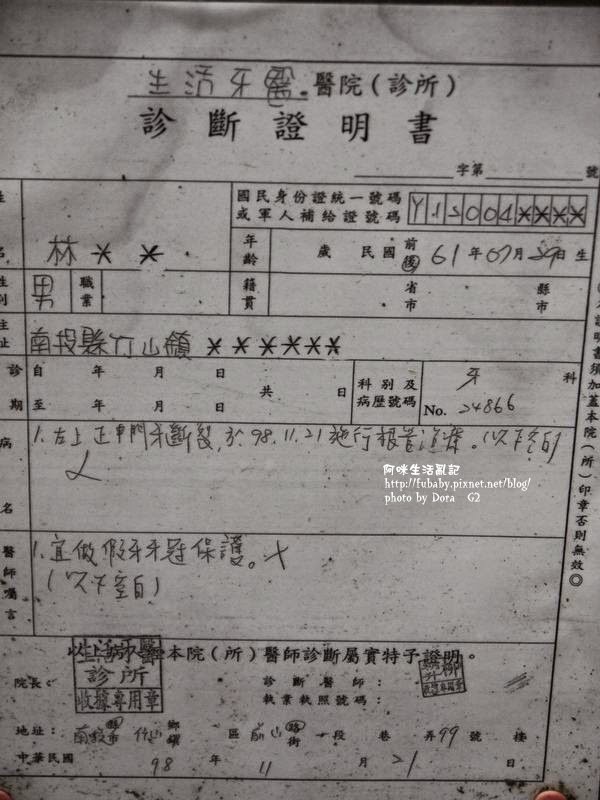 生活牙醫 醫院(診所)
診斷證明書
字第 號
姓名 林＊＊
國民身份證統一號碼
或軍人補給證號碼 Y12004＊＊＊＊
年齡 歲 民國 前 後 61年07月29日生
性別 男 職業 籍貫 省市 縣市
住址 南投縣竹山鎮＊＊＊＊＊＊
診期 自 年 月 日
至 年 月 日
共 日
科別及病歷號碼 牙科
No. 24866
病名 1.左上正中門牙斷裂,於98.11.21施行根管治療。以下空白
醫師囑言 1.宜做假牙牙冠保護。
(以下空白)
阿咪生活亂記
http://fubaby.pixnet.net/blog/
photo by Dora G2
本院(所)醫師診斷屬實特予證明。
生活牙醫
診所
收據專用章
院長：
診斷醫師：
執業執照號碼：
地址：南投 縣市 竹山 鄉鎮 區 前山 路街 一段 巷 弄 99 號 樓
中華民國 98 年 11 月 21 日
明書須加蓋本院(所)印章否則無效◎